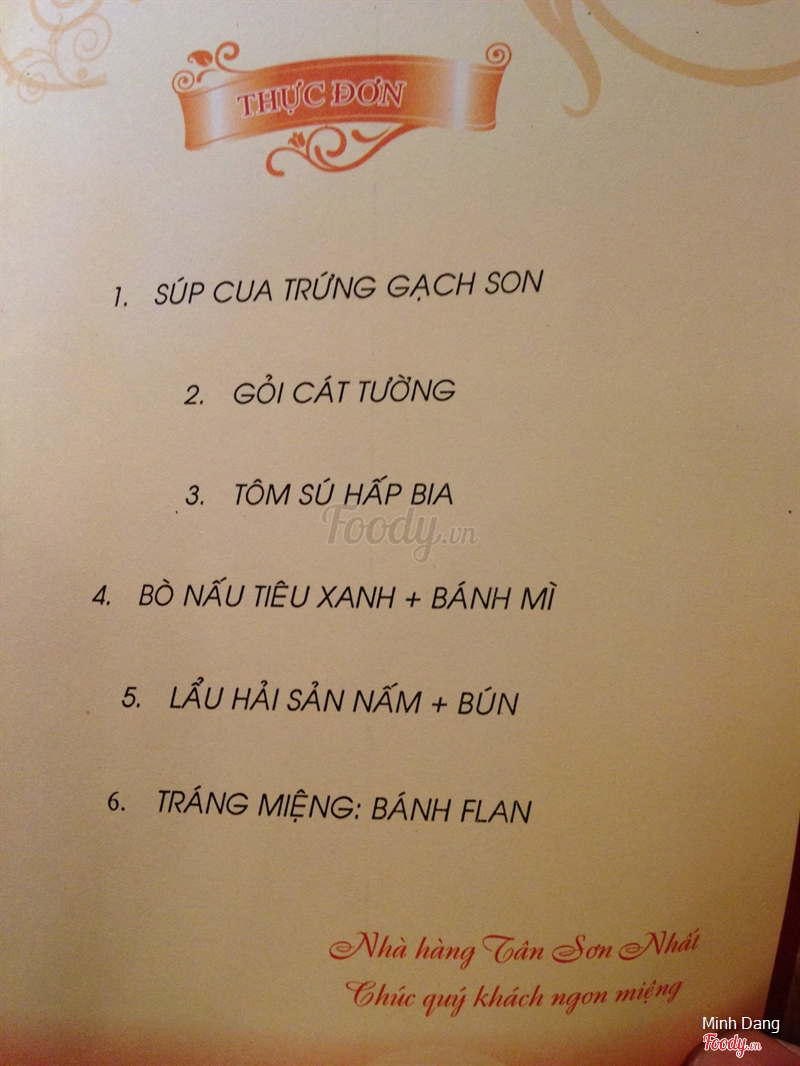 THỰC ĐƠN
1. SÚP CUA TRỨNG GẠCH SON
2. GỎI CÁT TƯỜNG
3. TÔM SÚ HẤP BIA
Foody.vn
4. BÒ NẤU TIÊU XANH + BÁNH MÌ
5. LẨU HẢI SẢN NẤM + BÚN
6. TRÁNG MIỆNG: BÁNH FLAN
Nhà hàng Tân Sơn Nhất
Chúc quý khách ngon miệng
Minh Dang
Foody.vn